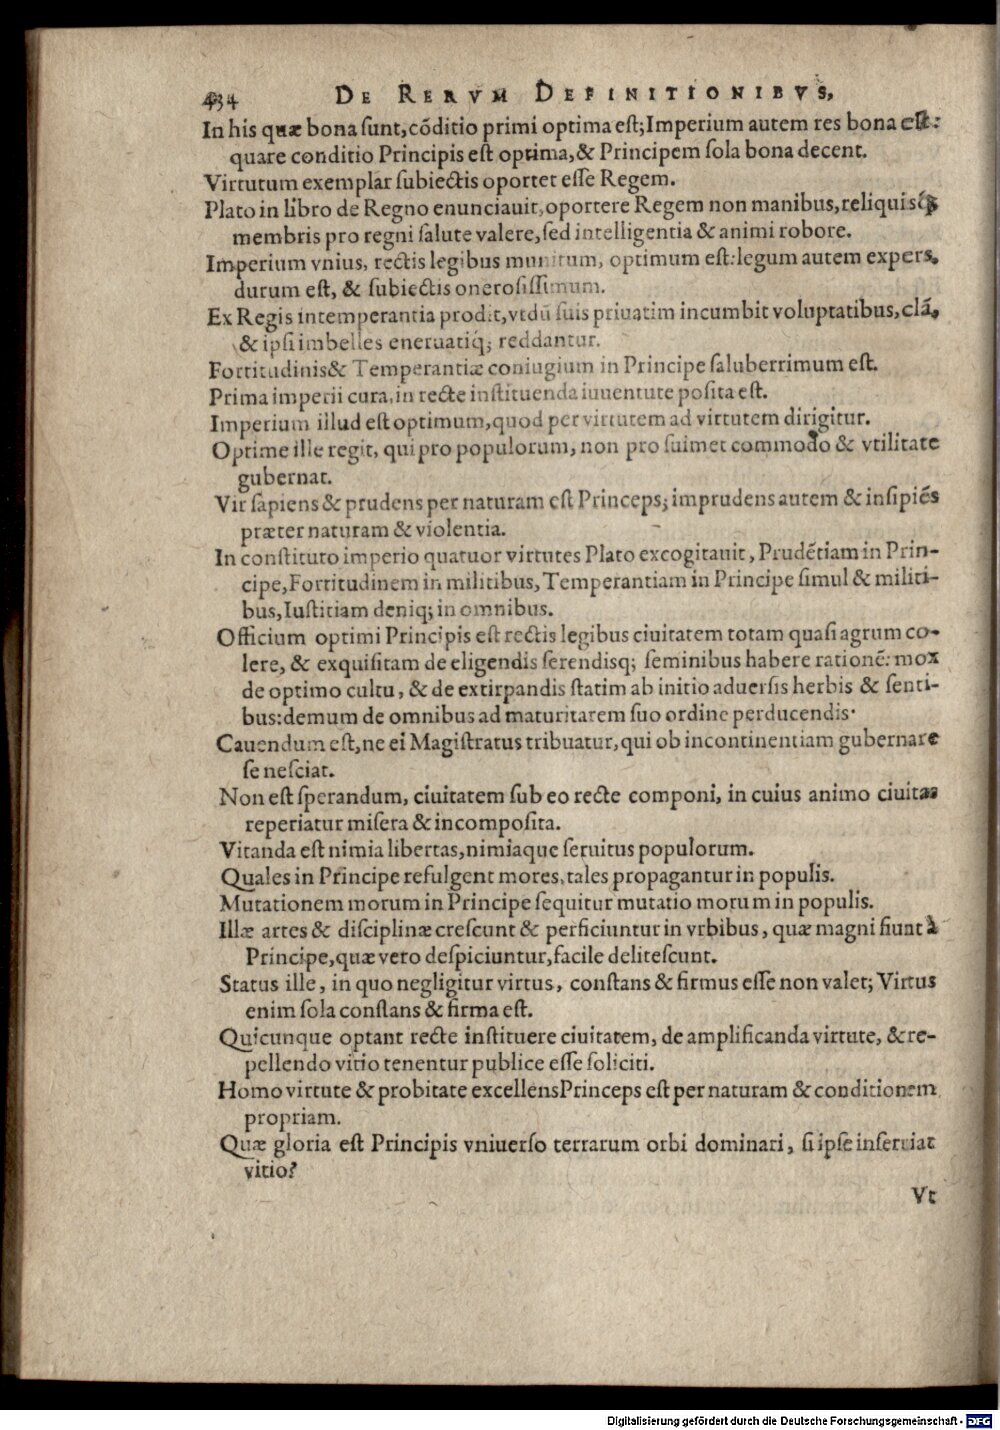 434 DE RERVM DEFINITIONIBVS,
In his quæ bona ſunt, cōditio primi optima eſt; Imperium autem res bona eſt:
quare conditio Principis eſt optima, & Principem ſola bona decent.
Virtutum exemplar ſubiectis oportet eſſe Regem.
Plato in libro de Regno enunciauit, oportere Regem non manibus, reliquisq́;
membris pro regni ſalute valere, ſed intelligentia & animi robore.
Imperium vnius, rectis legibus munitum, optimum eſt: legum autem expers,
durum eſt, & ſubiectis oneroſiſſimum.
Ex Regis intemperantia prodit, vt dū ſuis priuatim incumbit voluptatibus, clā,
& ipſi imbelles eneruatiq́; reddantur.
Fortitudinis & Temperantiæ coniugium in Principe ſaluberrimum eſt.
Prima imperii cura, in recte inſtituenda iuuentute poſita eſt.
Imperium illud eſt optimum, quod per virtutem ad virtutem dirigitur.
Optime ille regit, qui pro populorum, non pro ſuimet commodo & vtilitate
gubernat.
Vir ſapiens & prudens per naturam eſt Princeps; imprudens autem & inſipiēs
præter naturam & violentia.
In conſtituto imperio quatuor virtutes Plato excogitauit, Prudētiam in Prin-
cipe, Fortitudinem in militibus, Temperantiam in Principe ſimul & militi-
bus, Iuſtitiam deniq; in omnibus.
Officium optimi Principis eſt rectis legibus ciuitatem totam quaſi agrum co-
lere, & exquiſitam de eligendis ſerendisq; ſeminibus habere rationē: mox
de optimo cultu, & de extirpandis ſtatim ab initio aduerſis herbis & ſenti-
bus: demum de omnibus ad maturitatem ſuo ordine perducendis.
Cauendum eſt, ne ei Magiſtratus tribuatur, qui ob incontinentiam gubernare
ſe neſciat.
Non eſt ſperandum, ciuitatem ſub eo recte componi, in cuius animo ciuitas
reperiatur miſera & incompoſita.
Vitanda eſt nimia libertas, nimiaque ſeruitus populorum.
Quales in Principe refulgent mores, tales propagantur in populis.
Mutationem morum in Principe ſequitur mutatio morum in populis.
Illæ artes & diſciplinæ creſcunt & perficiuntur in vrbibus, quæ magni fiunt à
Principe, quæ vero deſpiciuntur, facile deliteſcunt.
Status ille, in quo negligitur virtus, conſtans & firmus eſſe non valet; Virtus
enim ſola conſtans & firma eſt.
Quicunque optant recte inſtituere ciuitatem, de amplificanda virtute, & re-
pellendo vitio tenentur publice eſſe ſoliciti.
Homo virtute & probitate excellens Princeps eſt per naturam & conditionem
propriam.
Quæ gloria eſt Principis vniuerſo terrarum orbi dominari, ſi ipſe inſeruiat
vitio?
Vt
Digitalisierung gefördert durch die Deutsche Forschungsgemeinschaft - DFG